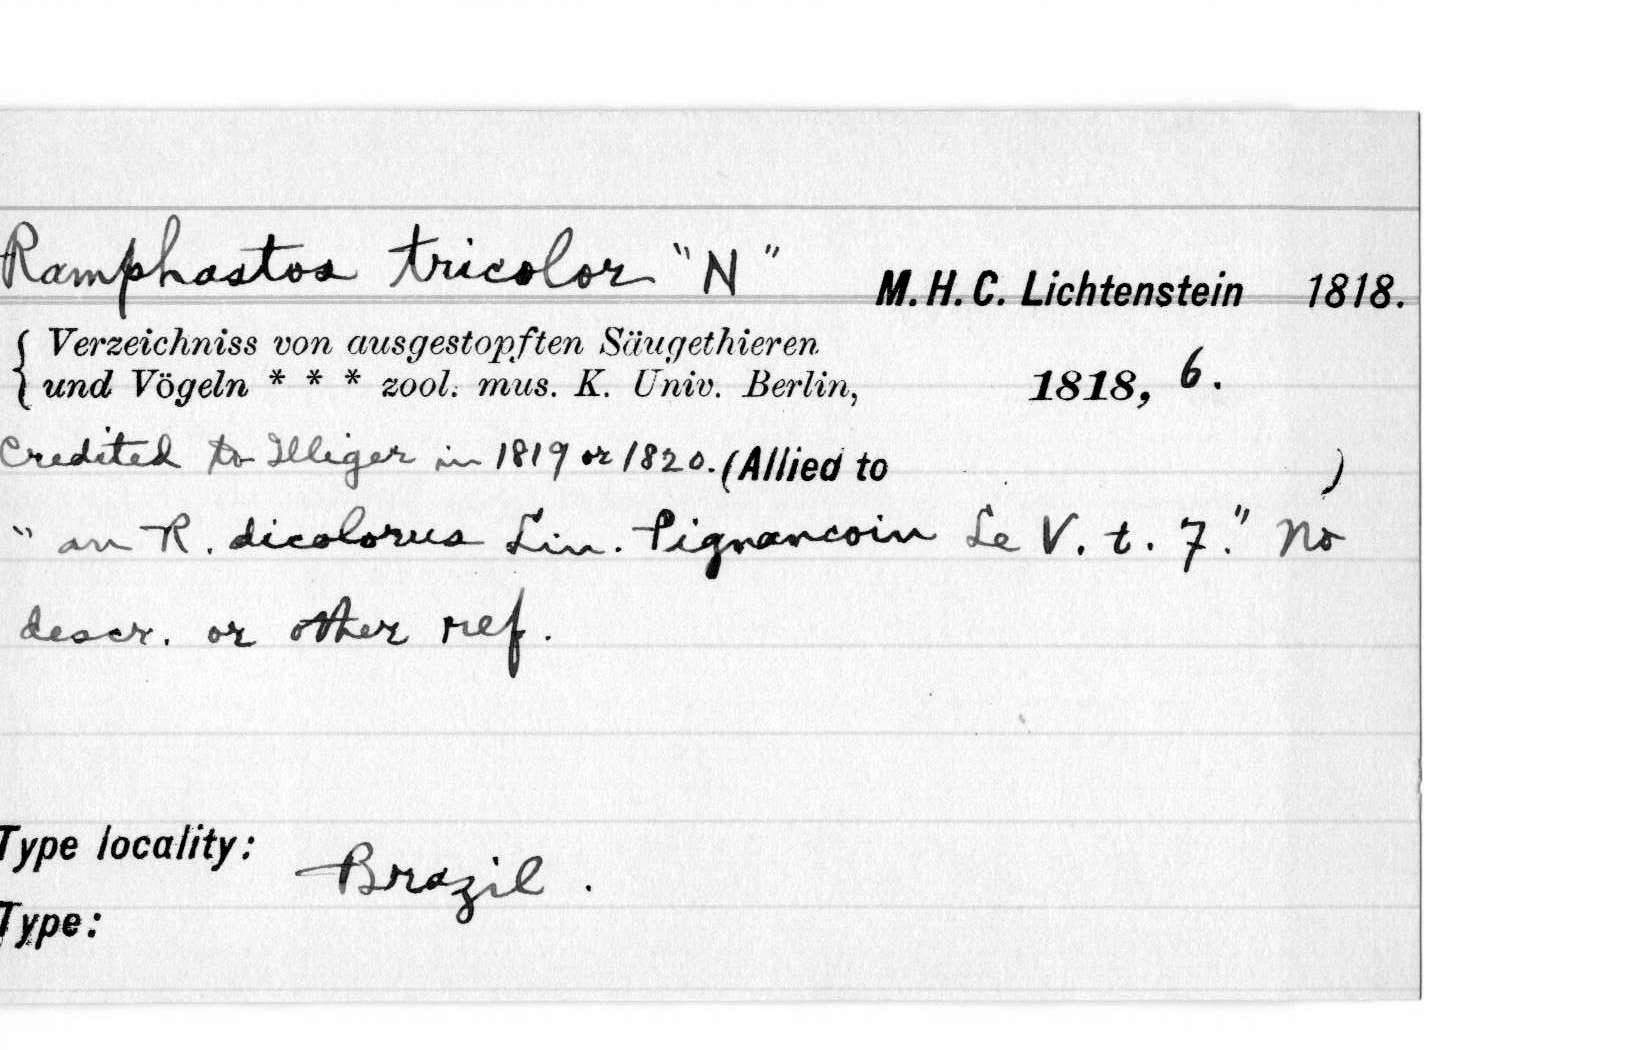 Ramphastos tricolor "N" M. H. C. Lichtenstein 1818.
{ Verzeichniss von ausgestopften Säugethieren
und Vögeln * * * zool. mus. K. Univ. Berlin, 1818, 6.
Credited to Illiger in 1819 or 1820. (Allied to )
" an R. dicolorus Lin. Pignancoin Le V. t. 7." No
descr. or other ref.
Type locality: Brazil.
Type: